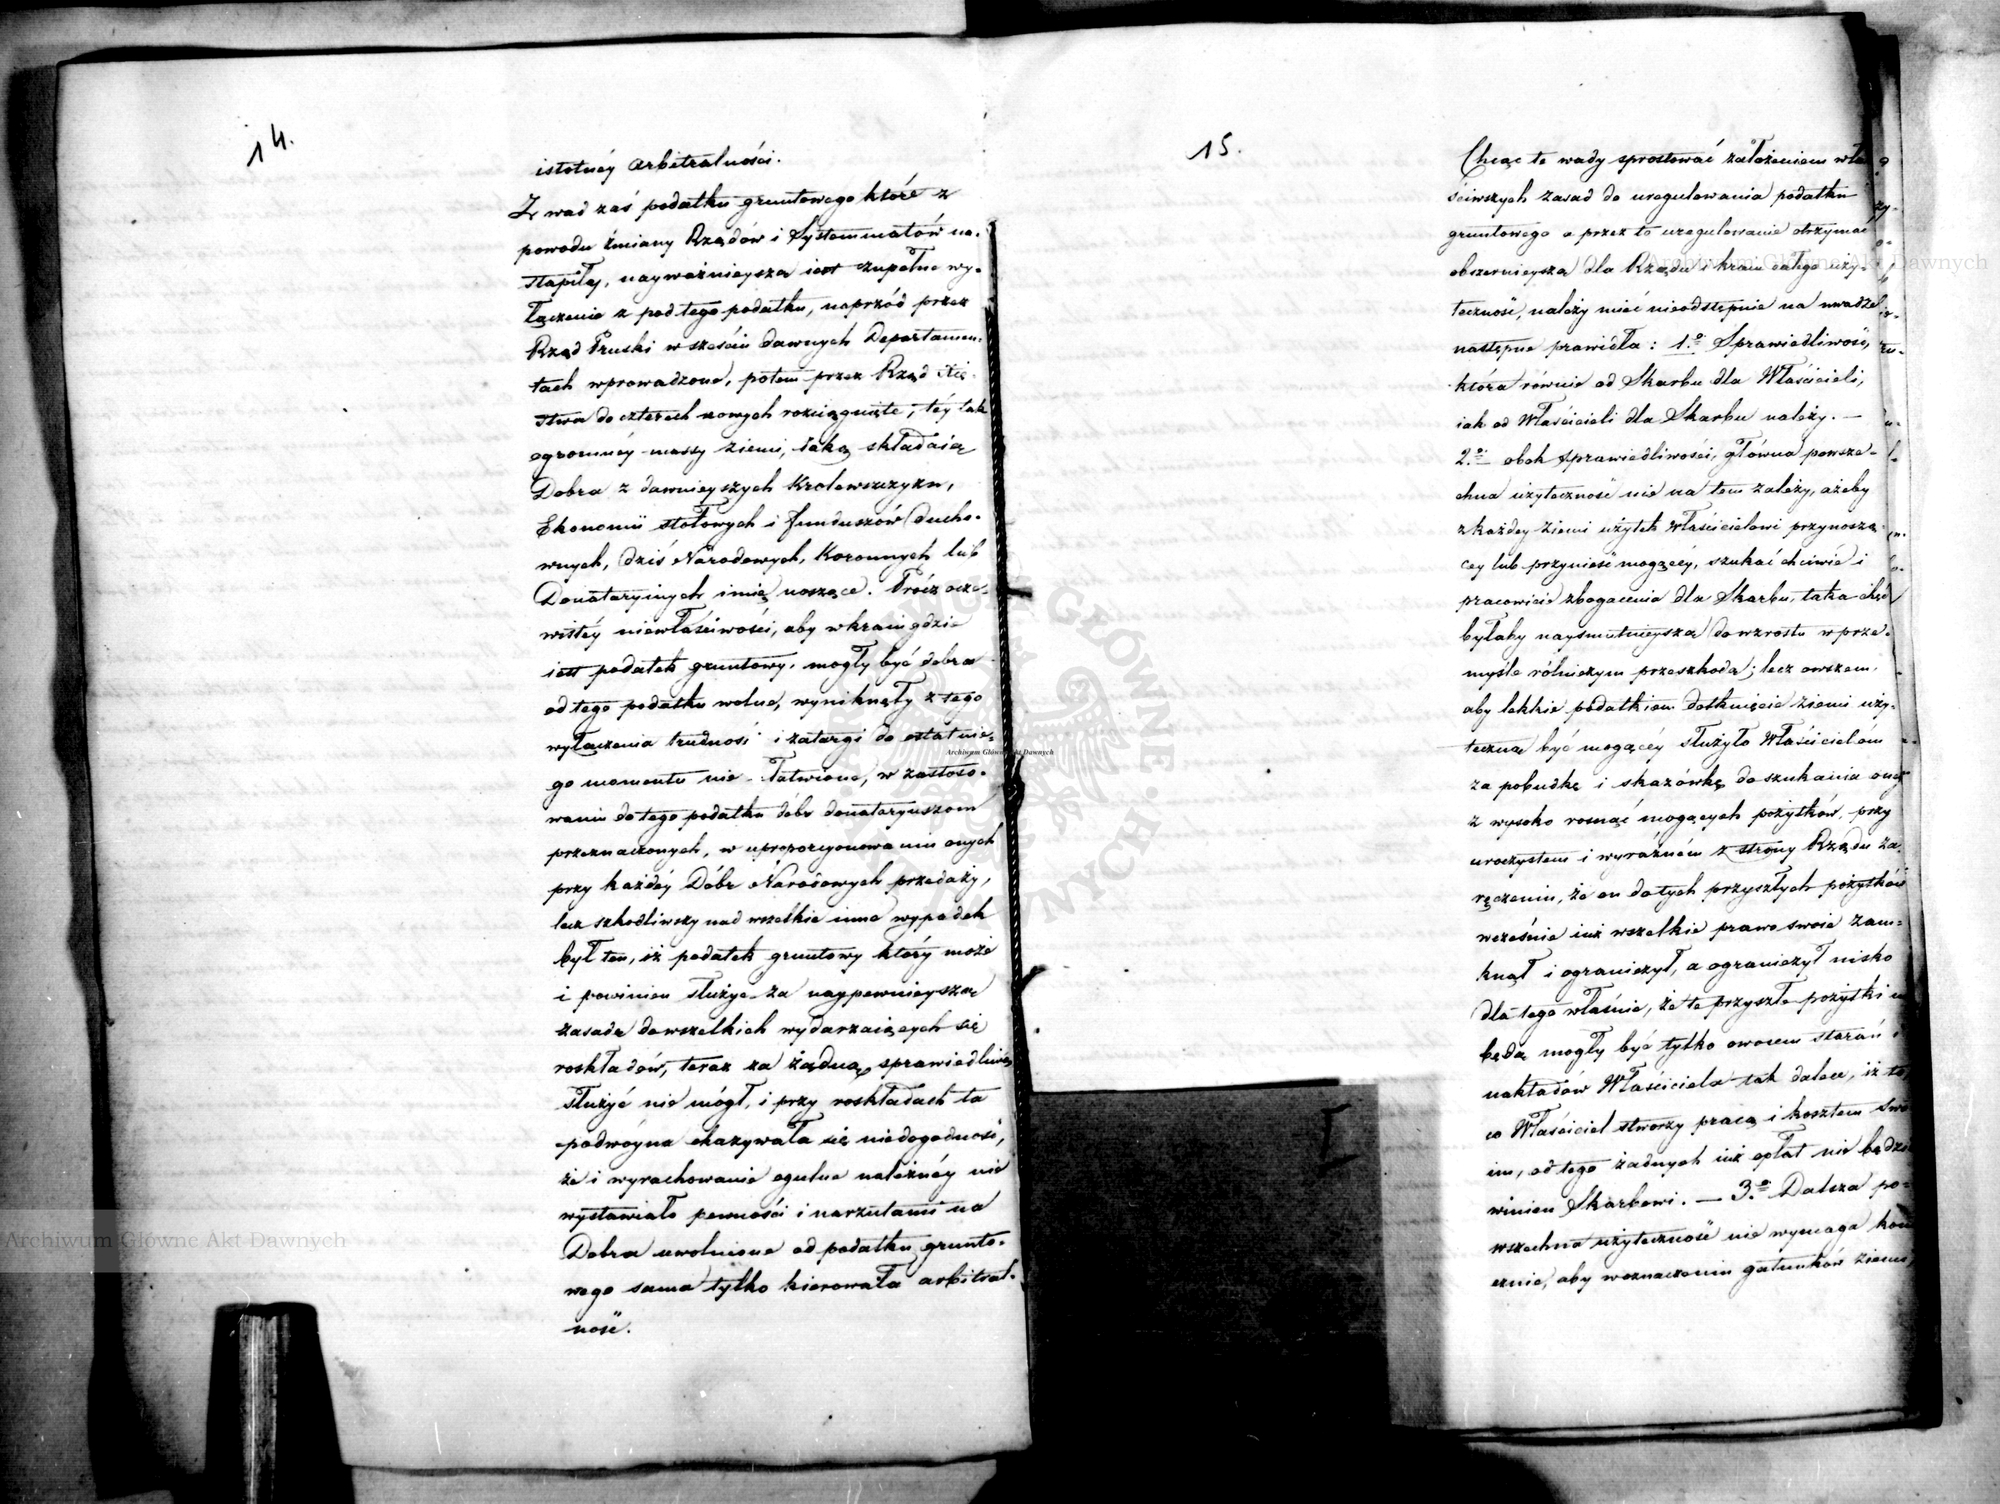 14.
istotnéy arbitralności.
Z wad zaś podatku gruntowego które z
powodu zmiany Rządów i Systemmatów na-
stąpiły, nayważnieysza iest zupełne wy-
łączenie z pod tego podatku, naprzód przez
Rząd Pruski w sześciu dawnych Departamen-
tach wprowadzone, potem przez Rząd Xię-
stwa do czterech nowych rozciągnięte, téy tak
ogromnéy massy ziemi, iaką składaią
Dobra z dawnieyszych Krolewszczyzn,
Ekonomii stołowych i funduszów Ducho-
wnych, dziś Narodowych, Koronnych lub
Donataryinych imię noszące. Prócz ocze-
wistéy niewłaściwości, aby w kraiu gdzie
iest podatek gruntowy, mogły być dobra
od tego podatku wolne, wyniknęły z tego
wyłączenia trudności i zatargi do ostatnie-
go momentu nie łatwione, w zastoso-
waniu do tego podatku dóbr donataryuszom
przeznaczonych, w uproporcyonowaniu onych
przy każdéy Dóbr Narodowych przedaży,
lecz szkodliwszy nad wszelkie inne wypadek
był ten, iż podatek gruntowy który może
i powinien służyć za naypewnieyszą
zasadę do wszelkich wydarzaiących się
rozkładów, teraz za żadną sprawiedliwą
służyć nie mógł, i przy rozkładach ta
podwóyna okazywała się niedogodność,
że i wyrachowanie ogulne należnéy nie
wystawiało pewności i narzutami na
Dobra uwolnione od podatku grunto-
wego sama tylko kierowała arbitral-
ność.
15.
Chcąc te wady sprostować założeniem wła
ściwszych zasad do uregulowania podatku
gruntowego a przez to uregulowanie otrzymać
obszernieyszą dla Rządu i kraiu całego uży-
teczność, należy mieć nieodstępnie na uwadze
następne prawidła: 1.o Sprawiedliwość,
która równie od Skarbu dla Właścicieli,
iak od Właścicieli dla Skarbu należy. —
2.o obok sprawiedliwości, główna powsze-
chna użyteczność nie na tem zależy, ażeby
z każdey ziemi użytek Właścicielowi przynoszą-
cey lub przynieść mogącéy, szukać chciwie i
pracowicie zbogacenia dla Skarbu, taka chęć
byłaby naysmutnieyszą do wzrostu w prze-
myśle rólniczym przeszkodą; lecz owszem,
aby lekkie podatkiem dotknięcie ziemi uży-
teczną być mogącéy służyło Właścicielom
za pobudkę i skazówkę do szukania onéy
z wysoko rosnąć mogących pożytków, przy
uroczystem i wyraźném z strony Rządu za-
ręczeniu, że on do tych przyszłych pożytków
wcześnie iuż wszelkie prawo swoie zam-
knął i ograniczył, a ograniczył nisko
dla tego właśnie, że te przyszłe pożytki
będą mogły być tylko owocem starań i
nakładów Właściciela tak dalece, iż to,
co Właściciel stworzy pracą i kosztem swo
im, od tego żadnych iuż opłat nie będzie
winien Skarbowi. — 3.o Dalsza po-
wszechna użyteczność nie wymaga kon
cznie, aby w oznaczeniu gatunków ziemi
I
Archiwum Główne Akt Dawnych
Archiwum Główne Akt Dawnych
Archiwum Główne Akt Dawnych